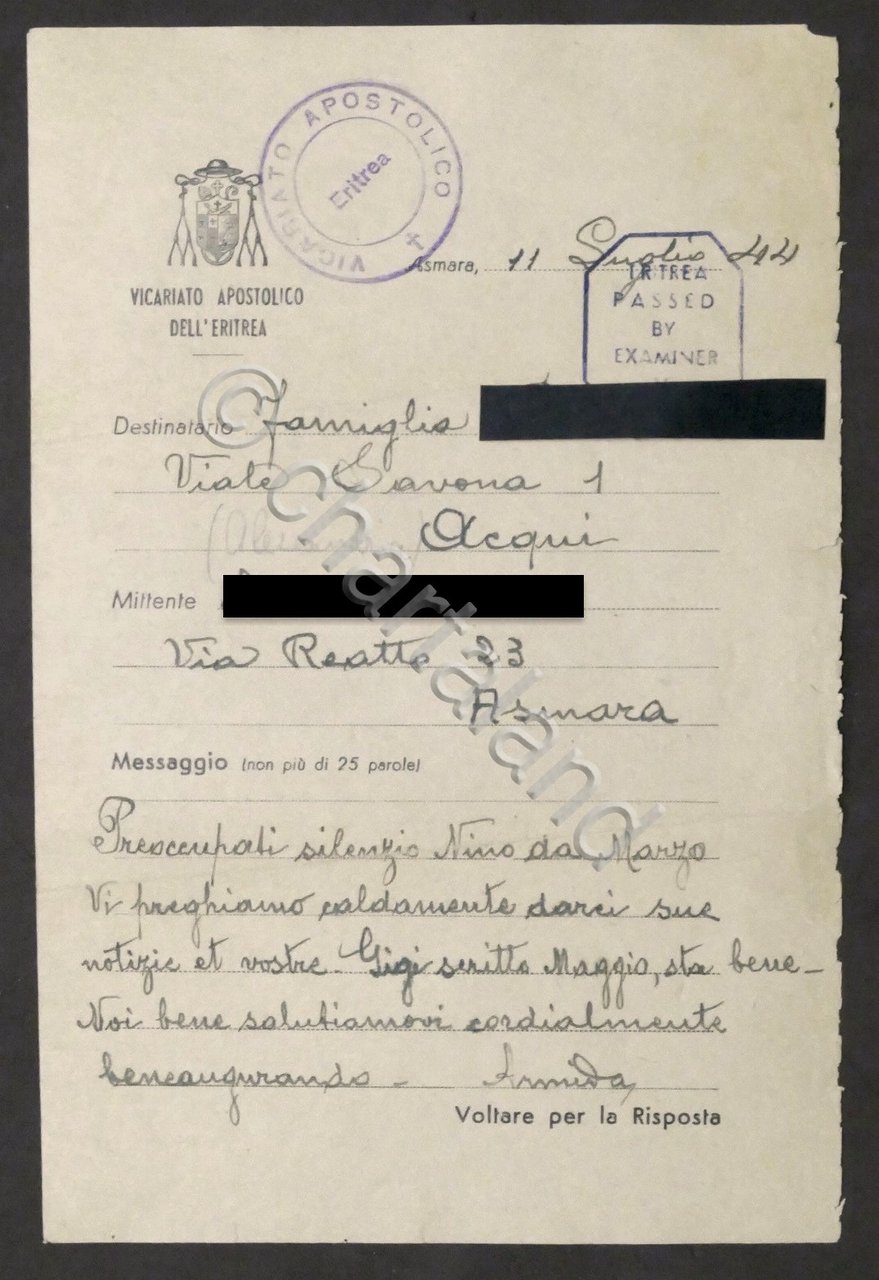 VICARIATO APOSTOLICO
Eritrea
VICARIATO APOSTOLICO
DELL'ERITREA
Asmara, 11 Luglio 44
ERITREA
PASSED
BY
EXAMINER
Destinatario Famiglia
Viale Savona 1
(Alessandria) Acqui
Mittente
Via Reatto 23
Asmara
Messaggio (non più di 25 parole)
Preoccupati silenzio Nino da Marzo
Vi preghiamo caldamente darci sue
notizie et vostre - Gigi scritto Maggio, sta bene -
Noi bene salutiamovi cordialmente
beneaugurando - Armida
Voltare per la Risposta
© Chartaland